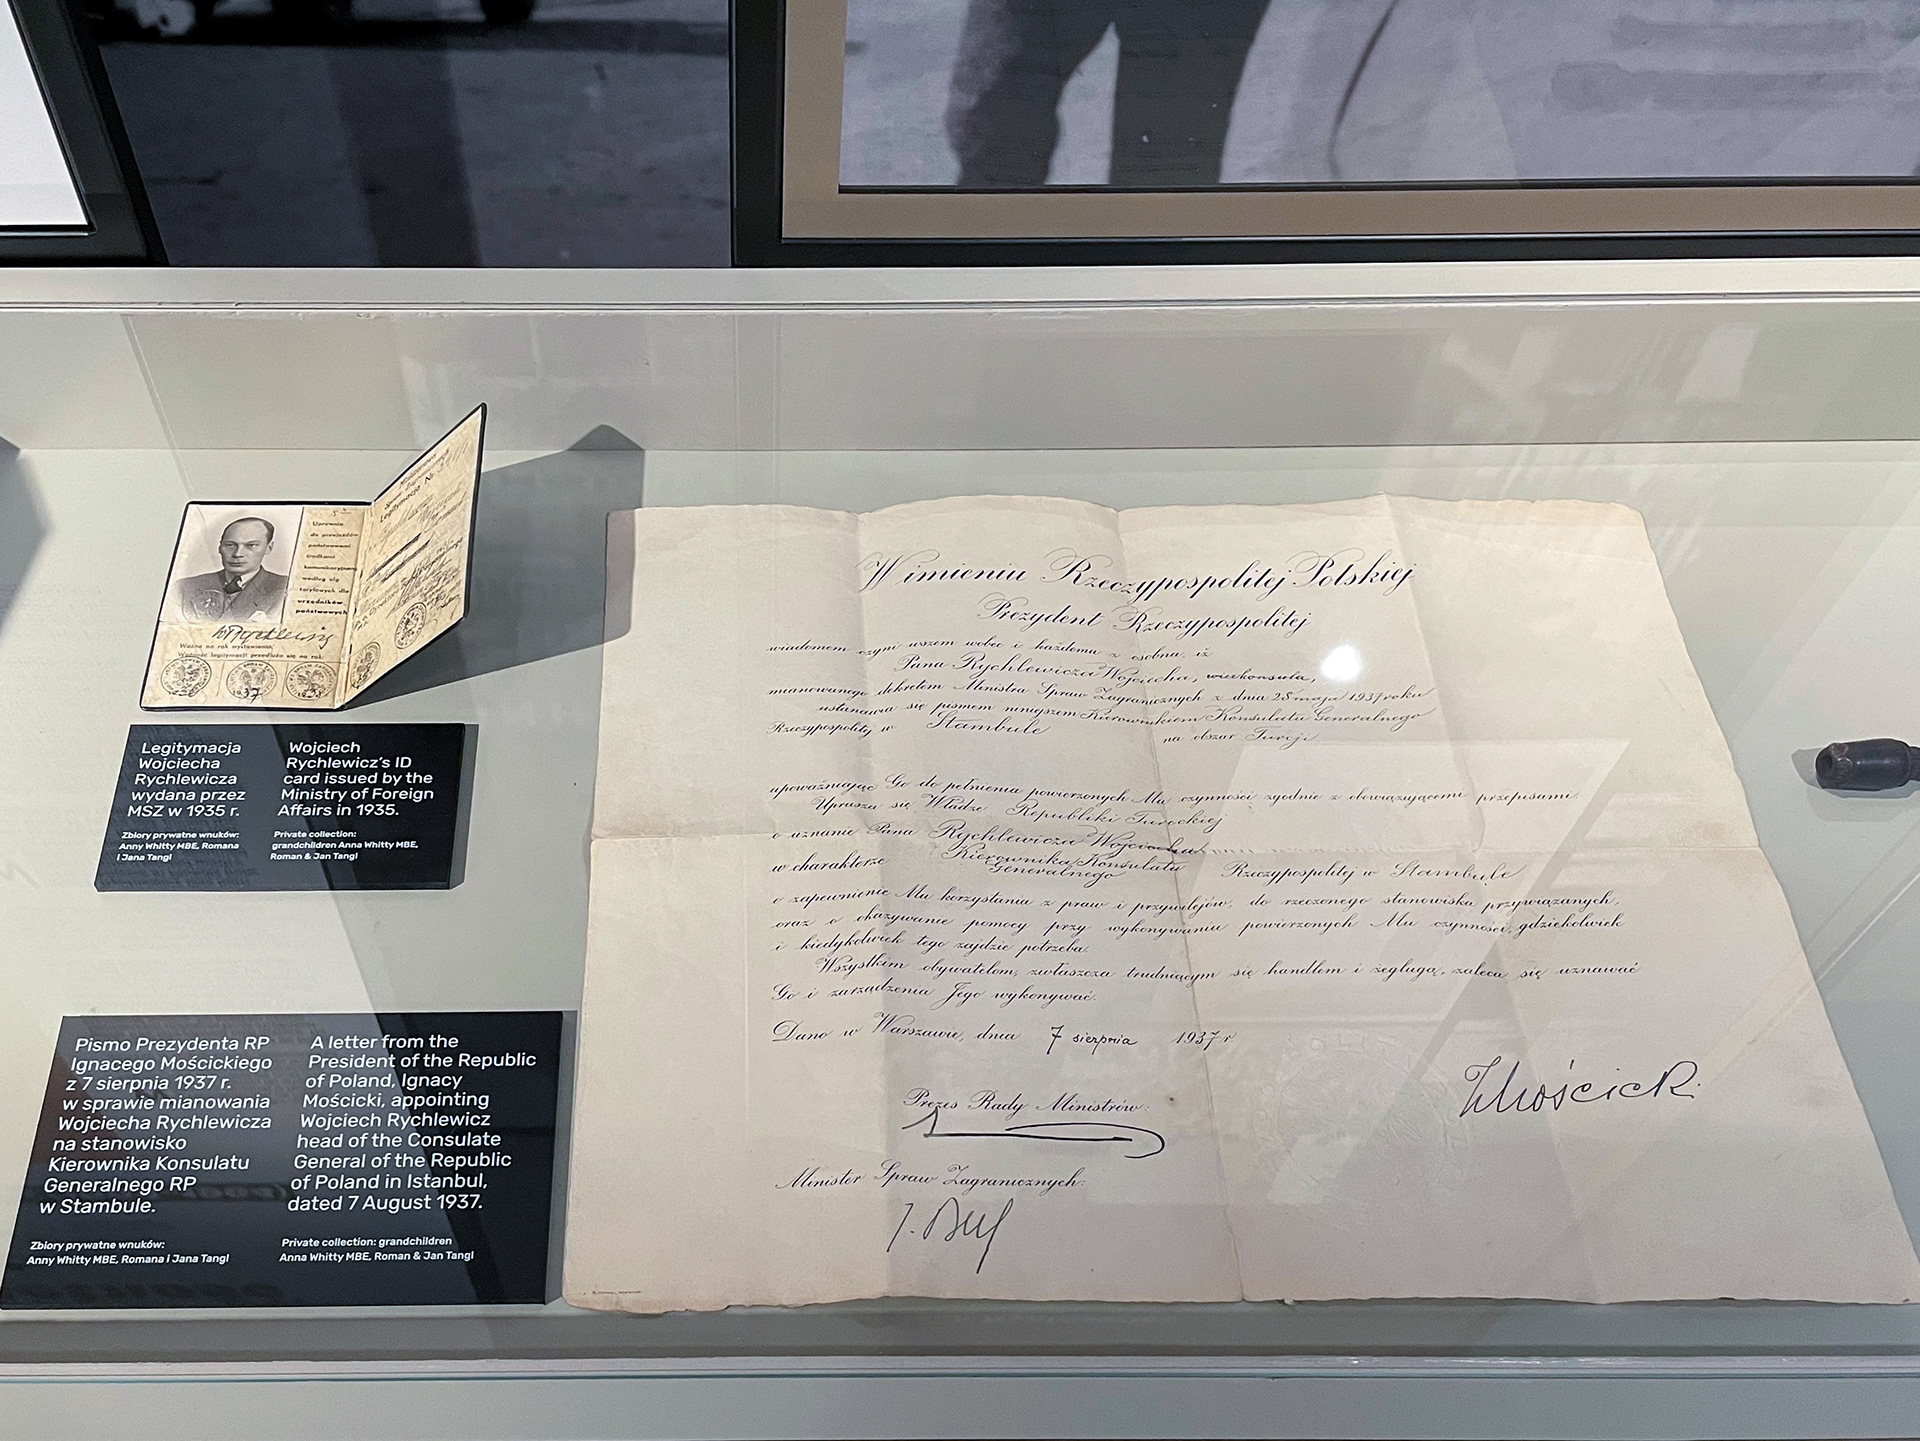 Uprawnia
do przejazdów
państwowemi
środkami
komunikacyjnemi
według ulg
taryfowych dla
urzędników
państwowych
WRychlewicz
Ważna na rok wystawienia.
Ważność legitymacji przedłuża się na rok:
1937
1938
Legitymacja Nr.
Legitymacja
Wojciecha
Rychlewicza
wydana przez
MSZ w 1935 r.
Zbiory prywatne wnuków:
Anny Whitty MBE, Romana
i Jana Tangl
Wojciech
Rychlewicz's ID
card issued by the
Ministry of Foreign
Affairs in 1935.
Private collection:
grandchildren Anna Whitty MBE,
Roman & Jan Tangl
Pismo Prezydenta RP
Ignacego Mościckiego
z 7 sierpnia 1937 r.
w sprawie mianowania
Wojciecha Rychlewicza
na stanowisko
Kierownika Konsulatu
Generalnego RP
w Stambule.
Zbiory prywatne wnuków:
Anny Whitty MBE, Romana i Jana Tangl
A letter from the
President of the Republic
of Poland, Ignacy
Mościcki, appointing
Wojciech Rychlewicz
head of the Consulate
General of the Republic
of Poland in Istanbul,
dated 7 August 1937.
Private collection: grandchildren
Anna Whitty MBE, Roman & Jan Tangl
W imieniu Rzeczypospolitej Polskiej
Prezydent Rzeczypospolitej
wiadomem czyni wszem wobec i każdemu z osobna, iż
Pana Rychlewicza Wojciecha, wicekonsula,
mianowanego dekretem Ministra Spraw Zagranicznych z dnia 28 maja 1937 roku
ustanawia się pismem niniejszem Kierownikiem Konsulatu Generalnego
Rzeczypospolitej w Stambule na obszar Turcji
upoważniając Go do pełnienia powierzonych Mu czynności zgodnie z obowiązującemi przepisami.
Uprasza się Władze Republiki Tureckiej
o uznanie Pana Rychlewicza Wojciecha
w charakterze Kierownika Konsulatu Generalnego Rzeczypospolitej w Stambule
o zapewnienie Mu korzystania z praw i przywilejów, do rzeczonego stanowiska przywiązanych,
oraz o okazywanie pomocy przy wykonywaniu powierzonych Mu czynności, gdziekolwiek
i kiedykolwiek tego zajdzie potrzeba.
Wszystkim obywatelom, zwłaszcza trudniącym się handlem i żeglugą, zaleca się uznawać
Go i zarządzenia Jego wykonywać.
Dano w Warszawie, dnia 7 sierpnia 1937 r.
IMościcki
Prezes Rady Ministrów:
Minister Spraw Zagranicznych:
J. Beck